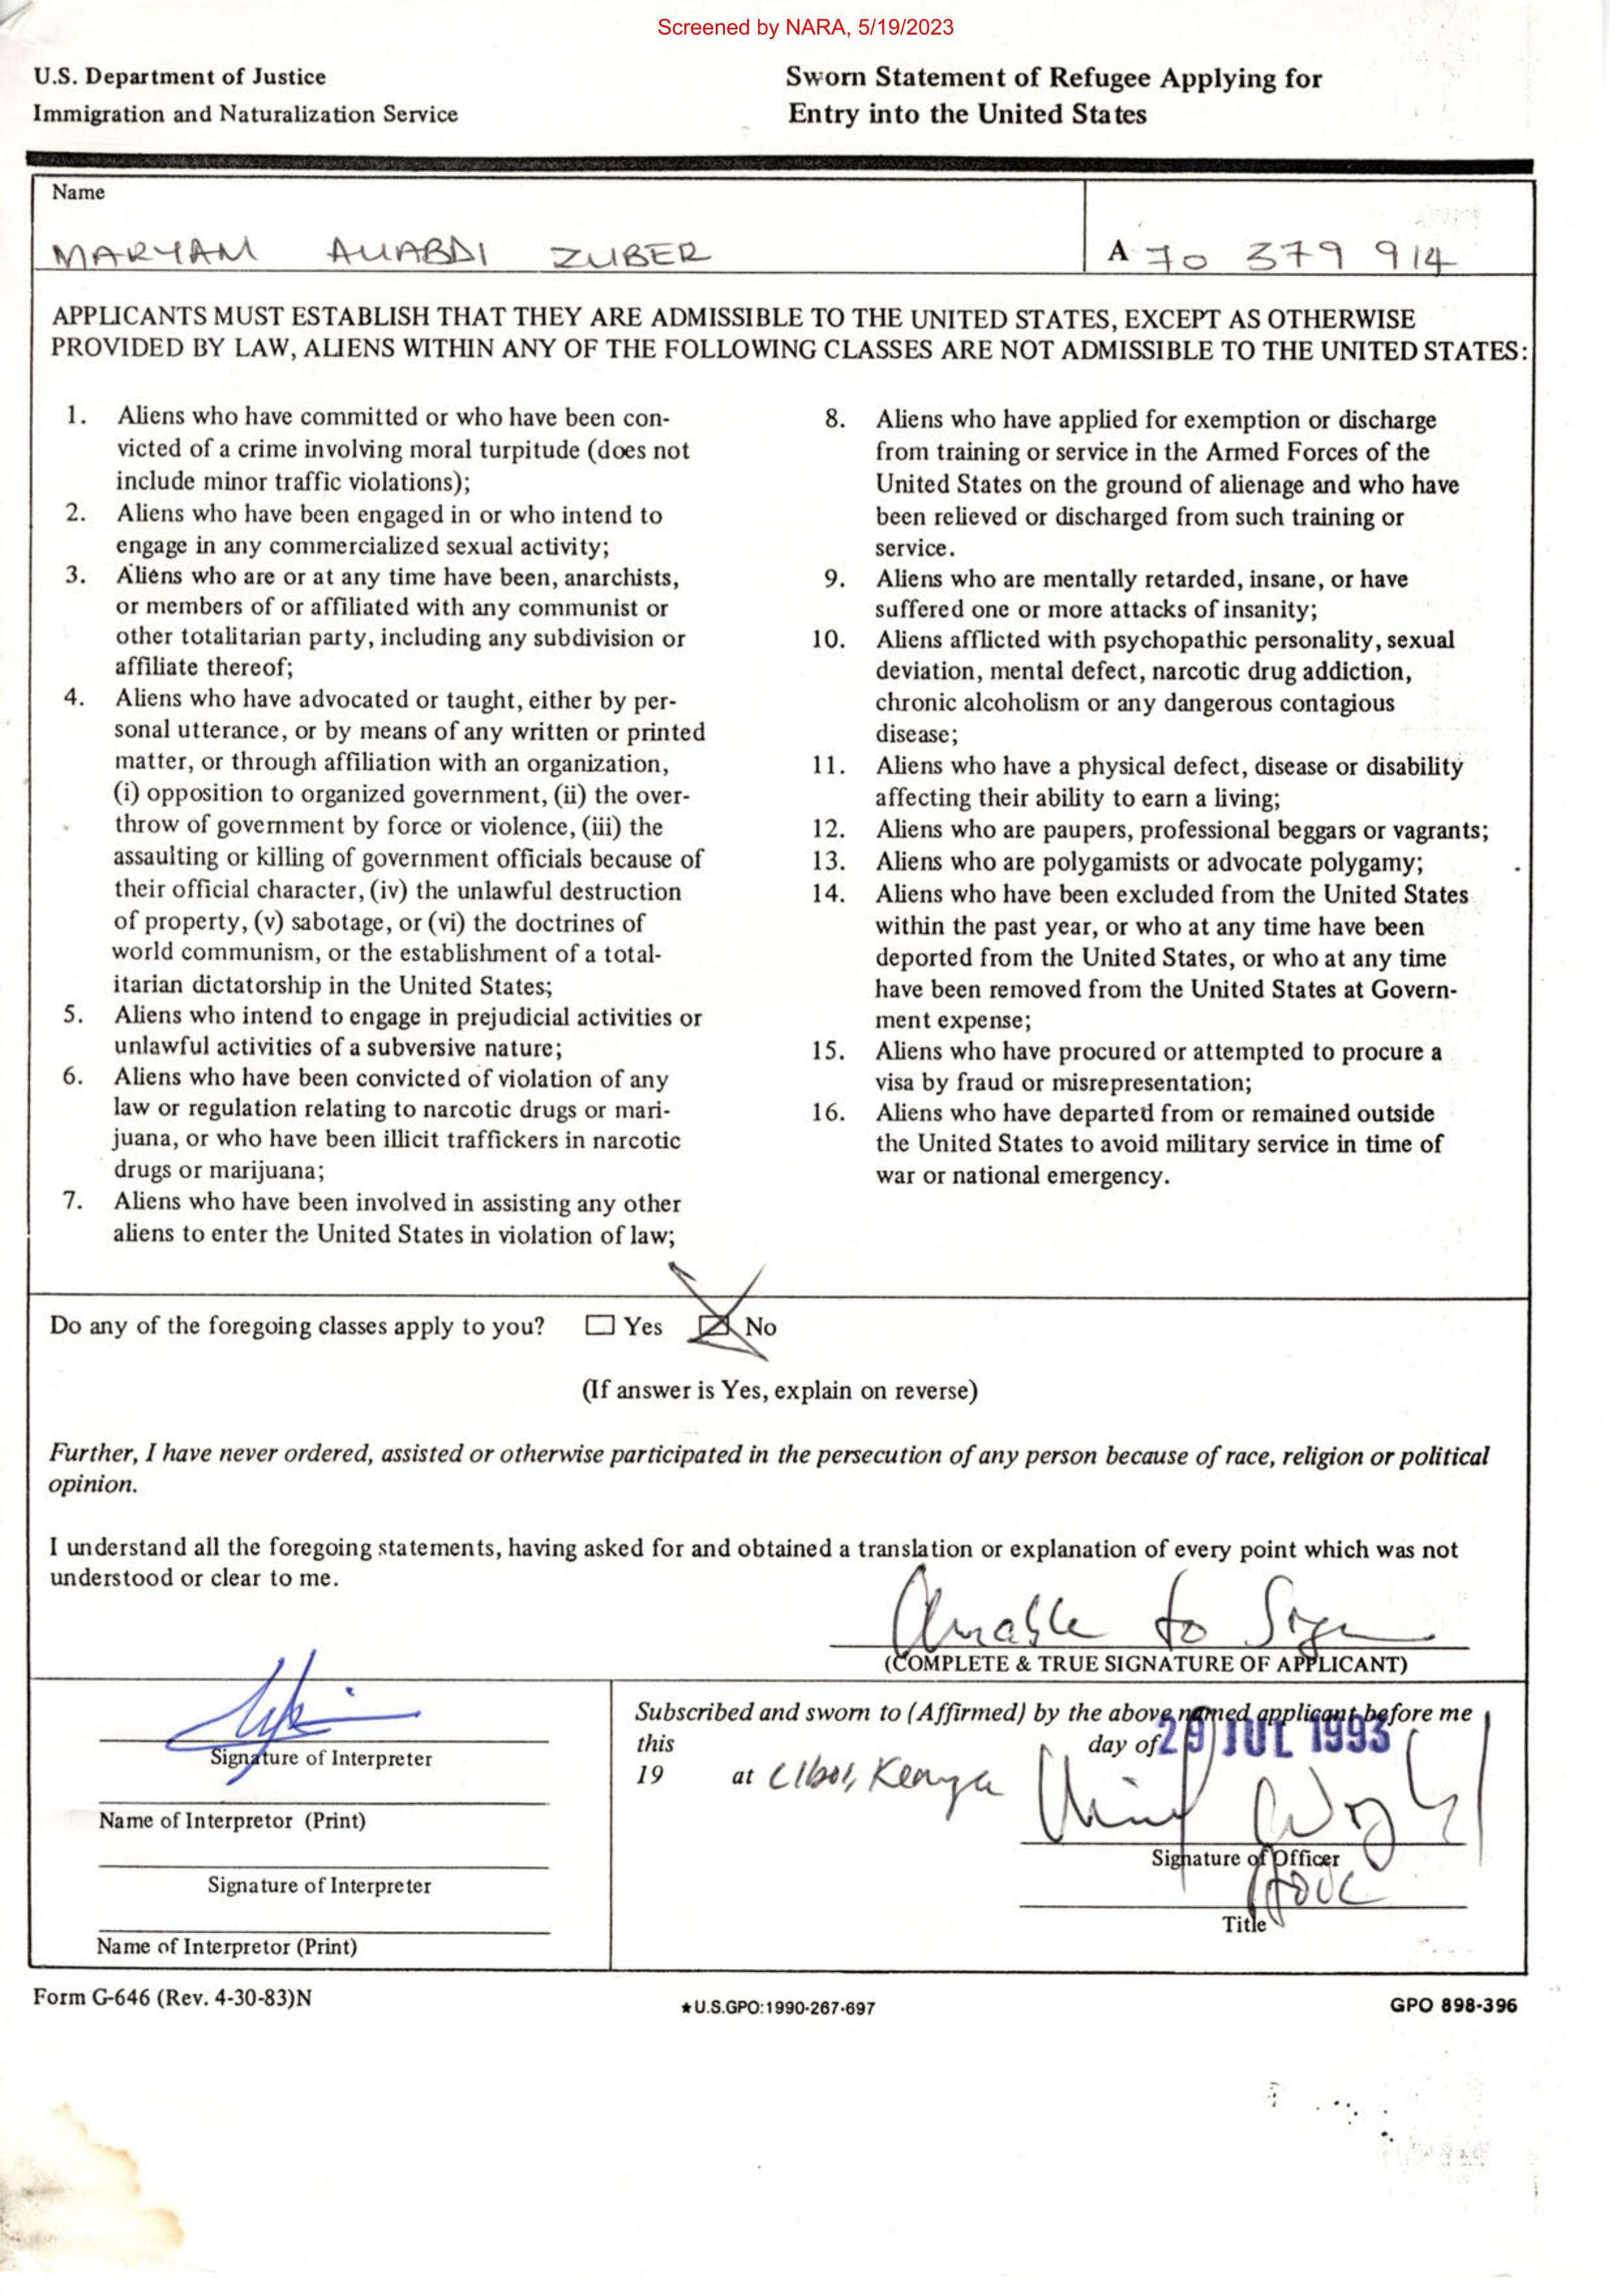 Screened by NARA, 5/19/2023
U.S. Department of Justice
Immigration and Naturalization Service
Sworn Statement of Refugee Applying for
Entry into the United States
Name
MARYAM ALIABDI ZUBER
A 70 379 914
APPLICANTS MUST ESTABLISH THAT THEY ARE ADMISSIBLE TO THE UNITED STATES, EXCEPT AS OTHERWISE
PROVIDED BY LAW, ALIENS WITHIN ANY OF THE FOLLOWING CLASSES ARE NOT ADMISSIBLE TO THE UNITED STATES:
1. Aliens who have committed or who have been con-
victed of a crime involving moral turpitude (does not
include minor traffic violations);
2. Aliens who have been engaged in or who intend to
engage in any commercialized sexual activity;
3. Aliens who are or at any time have been, anarchists,
or members of or affiliated with any communist or
other totalitarian party, including any subdivision or
affiliate thereof;
4. Aliens who have advocated or taught, either by per-
sonal utterance, or by means of any written or printed
matter, or through affiliation with an organization,
(i) opposition to organized government, (ii) the over-
throw of government by force or violence, (iii) the
assaulting or killing of government officials because of
their official character, (iv) the unlawful destruction
of property, (v) sabotage, or (vi) the doctrines of
world communism, or the establishment of a total-
itarian dictatorship in the United States;
5. Aliens who intend to engage in prejudicial activities or
unlawful activities of a subversive nature;
6. Aliens who have been convicted of violation of any
law or regulation relating to narcotic drugs or mari-
juana, or who have been illicit traffickers in narcotic
drugs or marijuana;
7. Aliens who have been involved in assisting any other
aliens to enter the United States in violation of law;
8. Aliens who have applied for exemption or discharge
from training or service in the Armed Forces of the
United States on the ground of alienage and who have
been relieved or discharged from such training or
service.
9. Aliens who are mentally retarded, insane, or have
suffered one or more attacks of insanity;
10. Aliens afflicted with psychopathic personality, sexual
deviation, mental defect, narcotic drug addiction,
chronic alcoholism or any dangerous contagious
disease;
11. Aliens who have a physical defect, disease or disability
affecting their ability to earn a living;
12. Aliens who are paupers, professional beggars or vagrants;
13. Aliens who are polygamists or advocate polygamy;
14. Aliens who have been excluded from the United States
within the past year, or who at any time have been
deported from the United States, or who at any time
have been removed from the United States at Govern-
ment expense;
15. Aliens who have procured or attempted to procure a
visa by fraud or misrepresentation;
16. Aliens who have departed from or remained outside
the United States to avoid military service in time of
war or national emergency.
Do any of the foregoing classes apply to you? Yes No
(If answer is Yes, explain on reverse)
Further, I have never ordered, assisted or otherwise participated in the persecution of any person because of race, religion or political
opinion.
I understand all the foregoing statements, having asked for and obtained a translation or explanation of every point which was not
understood or clear to me.
Unable to Sign
(COMPLETE & TRUE SIGNATURE OF APPLICANT)
Signature of Interpreter
Name of Interpretor (Print)
Signature of Interpreter
Name of Interpretor (Print)
Subscribed and sworn to (Affirmed) by the above named applicant before me
this day of 29 JUL 1993
19 at Liboi, Kenya
Signature of Officer
Title
Form G-646 (Rev. 4-30-83)N
★U.S.GPO:1990-267-697
GPO 898-396